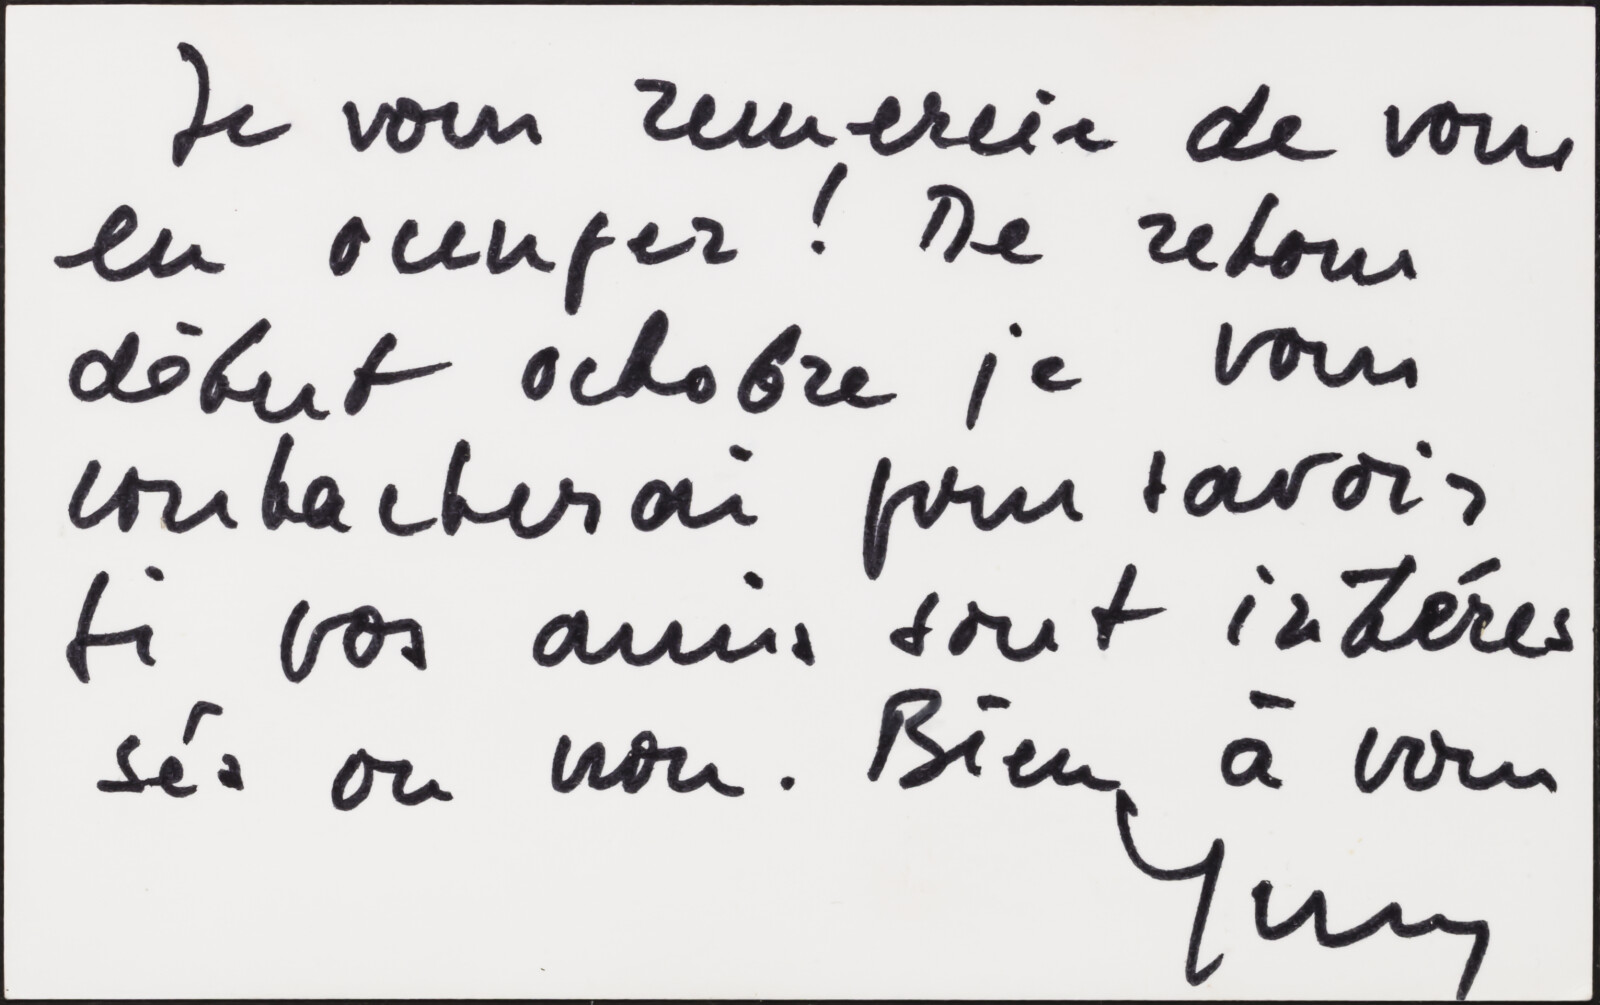 Je vous remercie de vous
en occuper ! De retour
début octobre je vous
contacterai pour savoir
si vos amis sont intéres
sés ou non. Bien à vous